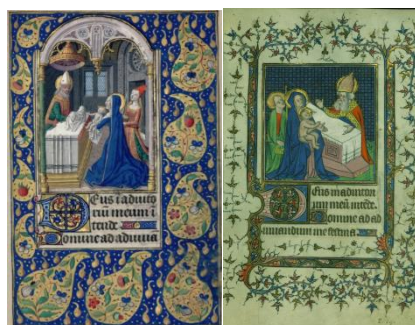 Deus i adiuto
riū meum i
tende
Domine ad adiuua
Deus in adiutor
ium meū intēde.
Domine ad ad
iuuandum me festina